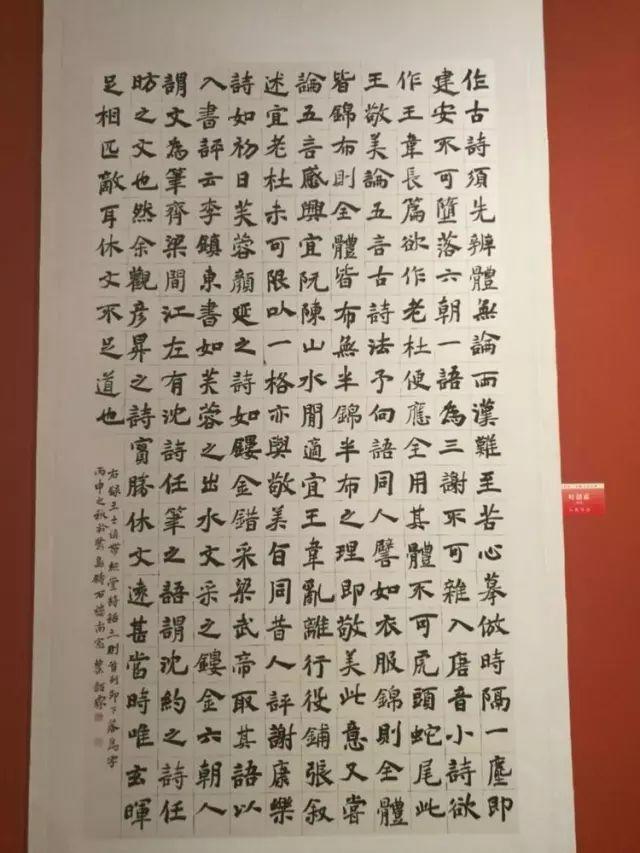 作古詩須先辨體無論兩漢難至苦心摹倣時隔一塵即
建安不可墮落六朝一語為三謝不可雜入唐音小詩欲
作王韋長篇欲作老杜便應全用其體不可虎頭蛇尾此
王敬美論五言古詩法予向語同人譬如衣服錦則全體
皆錦布則全體皆布無半錦半布之理即敬美此意又嘗
論五言感興宜阮陳山水閒適宜王韋亂離行役鋪張敘
述宜老杜未可限以一格亦與敬美旨同昔人評謝康樂
詩如初日芙蓉顏延之詩如鏤金錯采梁武帝取其語以
入書評云李鎮東書如芙蓉之出水文采之鏤金六朝人
謂文為筆齊梁間江左有沈詩任筆之語謂沈約之詩任
昉之文也然余觀彥昇之詩實勝休文遠甚當時唯玄暉
足相匹敵耳休文不足道也
右錄王士禎帶經堂詩話三則首列即下落為字
丙申之秋於鷺島石南窗葉韶霖